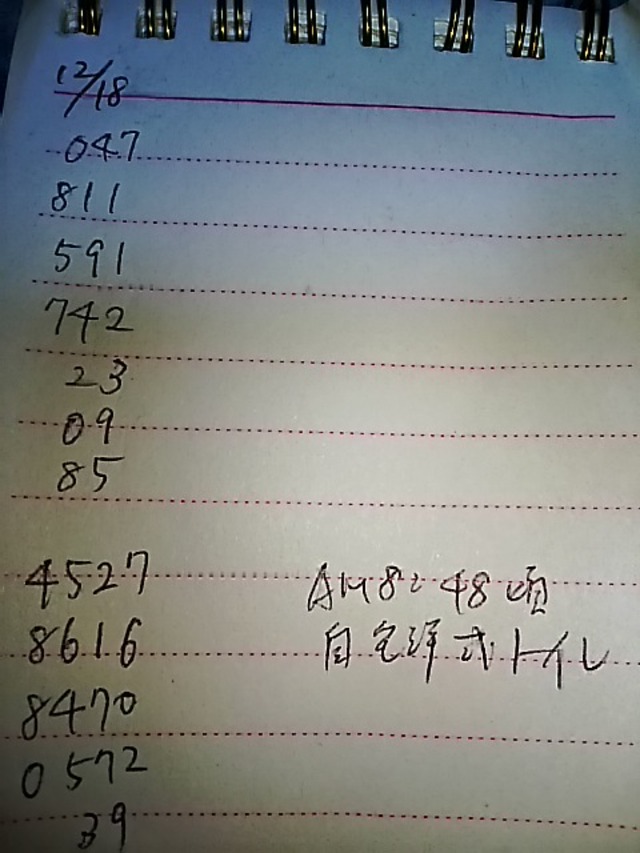 12/18
047
811
591
742
23
09
85
4527 AM8:48頃
8616 自宅洋式トイレ
8470
0572
39